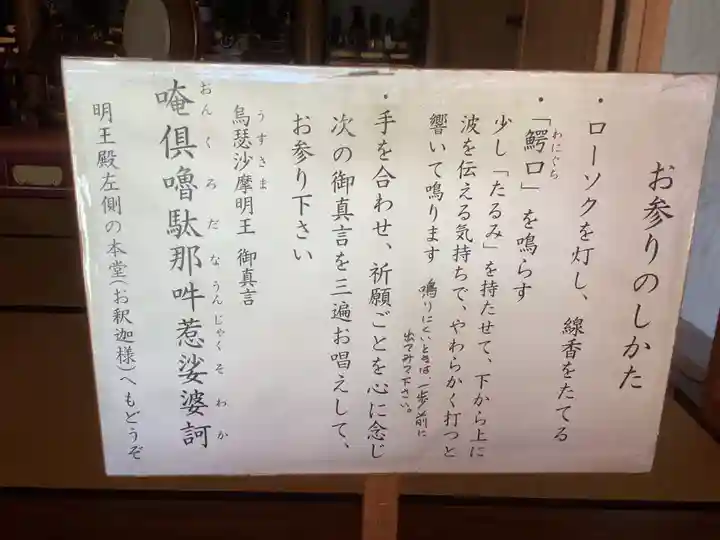 お参りのしかた
・ローソクを灯し、線香をたてる
・「鰐口」を鳴らす
わにぐち
少し「たるみ」を持たせて、下から上に
波を伝える気持ちで、やわらかく打つと
響いて鳴ります
鳴りにくいときは、一歩前に
出てみて下さい。
・手を合わせ、祈願ごとを心に念じ
次の御真言を三遍お唱えして、
お参り下さい
うすさま
烏瑟沙摩明王 御真言
おんくろだなうんじゃくそわか
唵倶嚕駄那吽惹娑婆訶
明王殿左側の本堂(お釈迦様)へもどうぞ